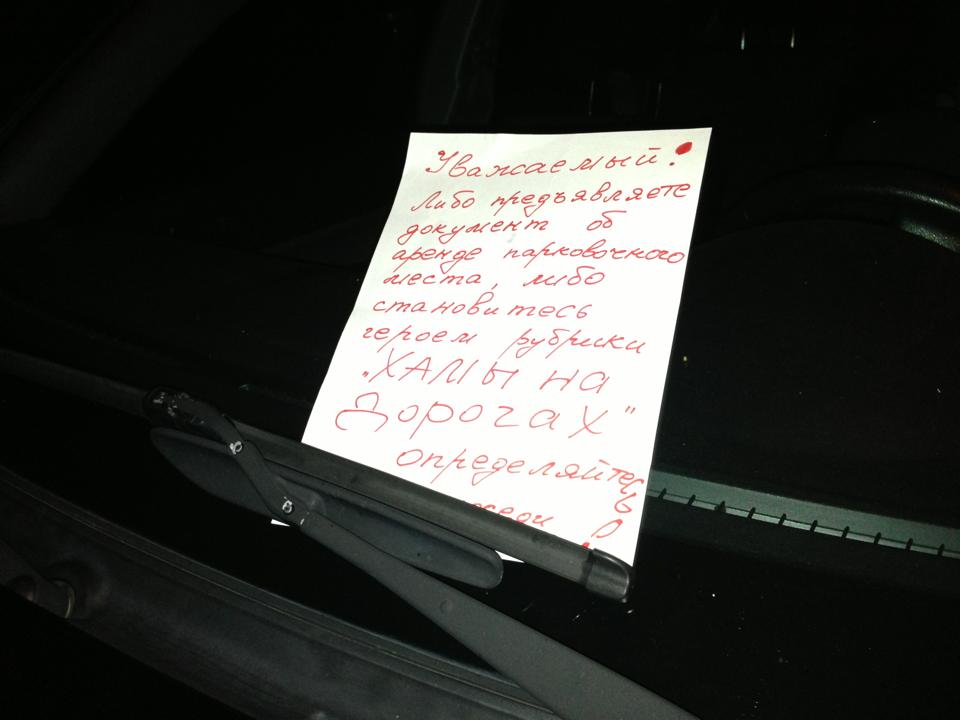 Уважаемый!
Либо предъявляете
документ об
аренде парковочного
места, либо
становитесь
героем рубрики
„ХАМы на
Дорогах"
определяйтесь